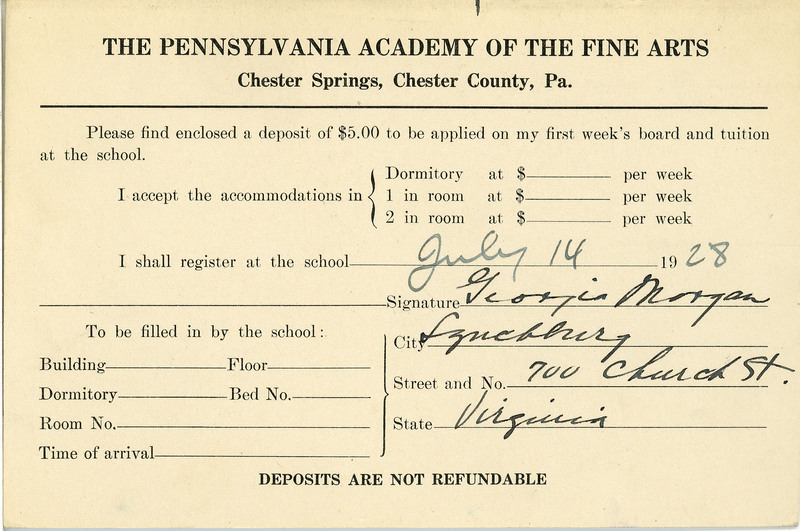 THE PENNSYLVANIA ACADEMY OF THE FINE ARTS
Chester Springs, Chester County, Pa.
Please find enclosed a deposit of $5.00 to be applied on my first week's board and tuition
at the school.
I accept the accommodations in
Dormitory at $ per week
1 in room at $ per week
2 in room at $ per week
I shall register at the school July 14 1928
Signature Georgia Morgan
To be filled in by the school:
City Lynchburg
Building Floor
Street and No. 700 Church St.
Dormitory Bed No.
State Virginia
Room No.
Time of arrival
DEPOSITS ARE NOT REFUNDABLE